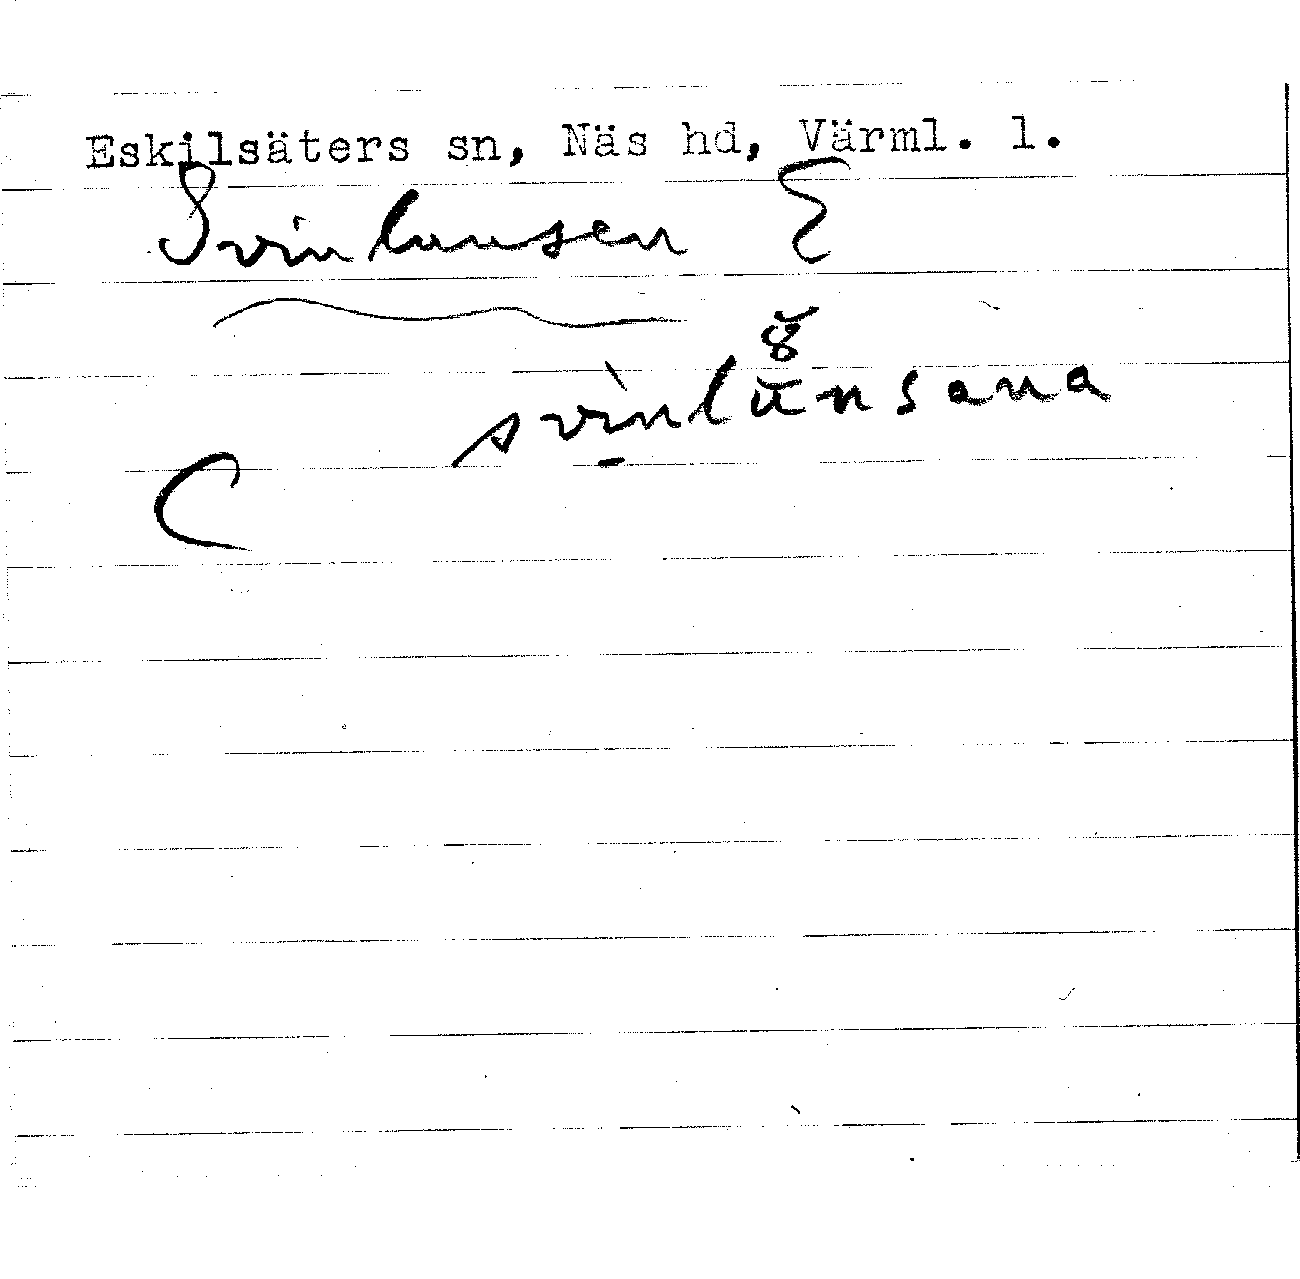 Eskilsäters sn, Näs hd, Värml. l.
Svinlunsen E
svinlunsana
C